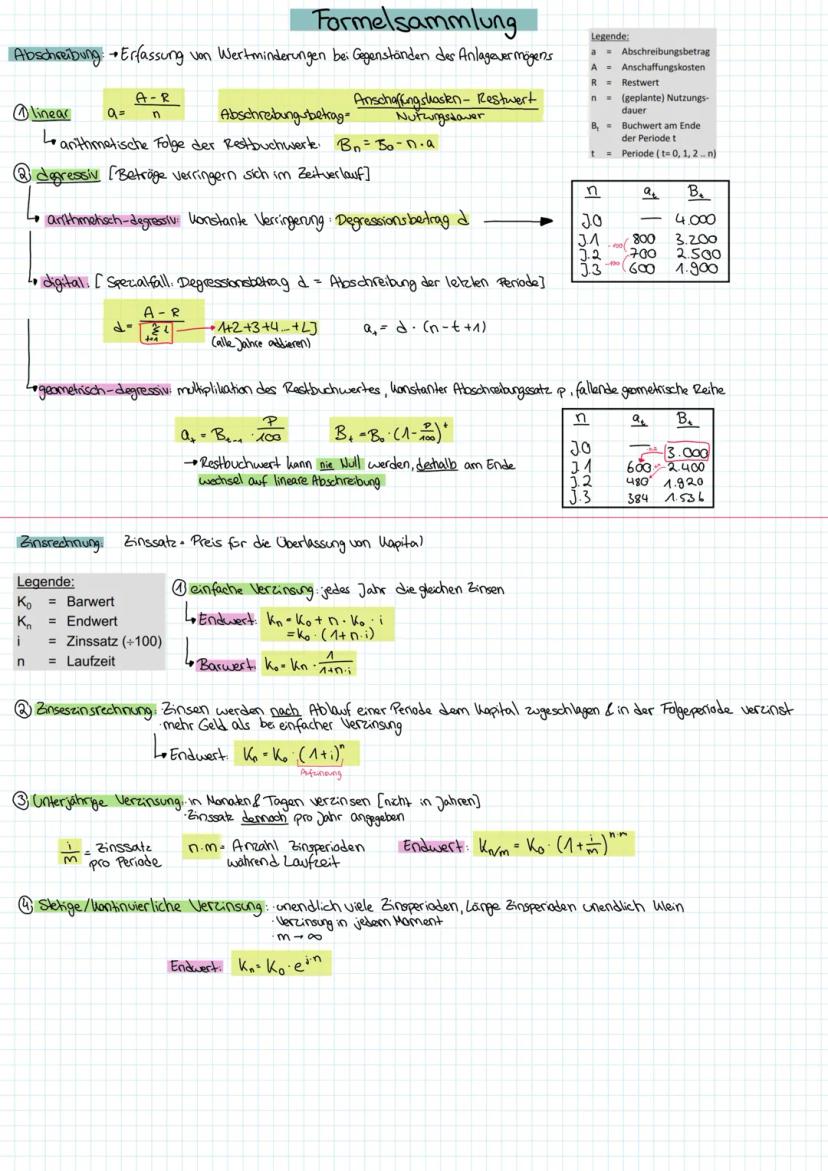 Formelsammlung
Abschreibung: → Erfassung von Wertminderungen bei Gegenständen des Anlagevermögens
Legende:
a = Abschreibungsbetrag
A = Anschaffungskosten
R = Restwert
n = (geplante) Nutzungs-
dauer
Bₜ = Buchwert am Ende
der Periode t
t = Periode ( t= 0, 1, 2 .. n)
① linear a = (A - R) / n Abschreibungsbetrag = (Anschaffungskosten - Restwert) / Nutzungsdauer
↳ arithmetische Folge der Restbuchwerte: Bₙ = B₀ - n · a
② degressiv [Beträge verringern sich im Zeitverlauf]
↳ arithmetisch-degressiv: konstante Verringerung: Degressionsbetrag d →
n aₜ Bₜ
J0 — 4.000
J.1 800 3.200
J.2 -100 700 2.500
J.3 -100 600 1.900
↳ digital: [Spezialfall: Degressionsbetrag d = Abschreibung der letzten Periode]
d = (A - R) / → 1+2+3+4...+L] aₜ = d · (n - t + 1)
(alle Jahre addieren)
↳ geometrisch-degressiv: multiplikation des Restbuchwertes, konstanter Abschreibungssatz p, fallende geometrische Reihe
aₜ = Bₜ₋₁ · P/100 Bₜ = B₀ · (1 - P/100)ᵗ
→ Restbuchwert kann nie Null werden, deshalb am Ende
wechsel auf lineare Abschreibung
n aₜ Bₜ
J0 — 3.000
J.1 600 2.400
J.2 480 1.920
J.3 384 1.536
Zinsrechnung: Zinssatz = Preis für die Überlassung von Kapital
Legende:
K₀ = Barwert
Kₙ = Endwert
i = Zinssatz (÷100)
n = Laufzeit
① einfache Verzinsung: jedes Jahr die gleichen Zinsen
↳ Endwert: Kₙ = K₀ + n · K₀ · i
= K₀ · (1 + n · i)
↳ Barwert: K₀ = Kₙ · 1/(1+n·i)
② Zinseszinsrechnung: Zinsen werden nach Ablauf einer Periode dem Kapital zugeschlagen & in der Folgeperiode verzinst
· mehr Geld als bei einfacher Verzinsung
↳ Endwert: Kₙ = K₀ · (1+i)ⁿ
Aufzinsung
③ Unterjährige Verzinsung: · in Monaten & Tagen verzinsen [nicht in Jahren]
· Zinssatz dennoch pro Jahr angegeben
i/m = Zinssatz pro Periode n·m = Anzahl Zinsperioden während Laufzeit Endwert: Kₙ/ₘ = K₀ · (1 + i/m)ⁿ·ᵐ
④ Stetige/kontinuierliche Verzinsung: · unendlich viele Zinsperioden, Länge Zinsperioden unendlich klein
· Verzinsung in jedem Moment
· m → ∞
Endwert: Kₙ = K₀ · eⁱ·ⁿ